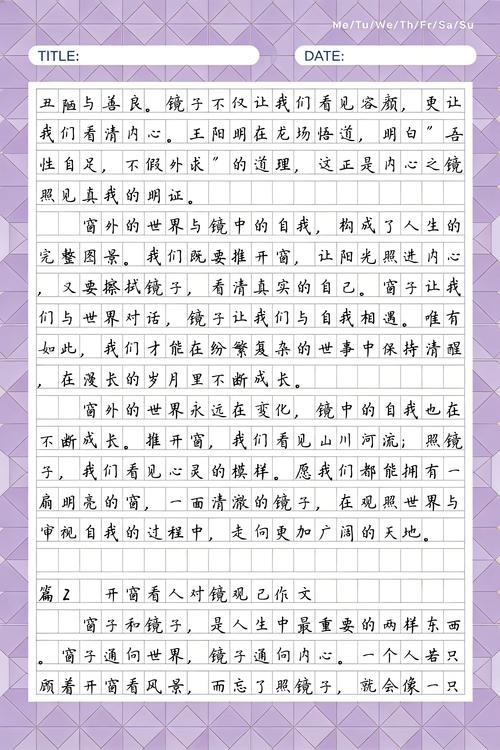 Me/Tu/We/Th/Fr/Sa/Su
TITLE: DATE:
丑陋与善良。镜子不仅让我们看见容颜，更让
我们看清内心。王阳明在龙场悟道，明白"吾
性自足，不假外求"的道理，这正是内心之镜
照见真我的明证。
窗外的世界与镜中的自我，构成了人生的
完整图景。我们既要推开窗，让阳光照进内心
，又要擦拭镜子，看清真实的自己。窗子让我
们与世界对话，镜子让我们与自我相遇。唯有
如此，我们才能在纷繁复杂的世事中保持清醒
，在漫长的岁月里不断成长。
窗外的世界永远在变化，镜中的自我也在
不断成长。推开窗，我们看见山川河流；照镜
子，我们看见心灵的模样。愿我们都能拥有一
扇明亮的窗，一面清澈的镜子，在观照世界与
审视自我的过程中，走向更加广阔的天地。
篇2 开窗看人对镜观己作文
窗子和镜子，是人生中最重要的两样东西
。窗子通向世界，镜子通向内心。一个人若只
顾着开窗看风景，而忘了照镜子，就会像一只